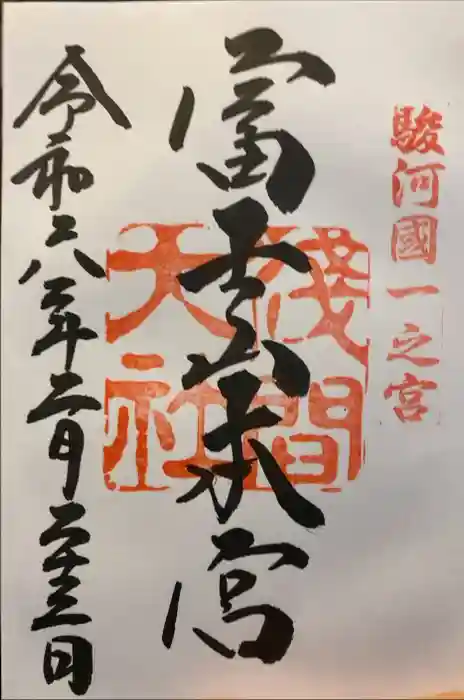 駿河國一之宮
富士山本宮
淺間大社
令和六年二月二十三日